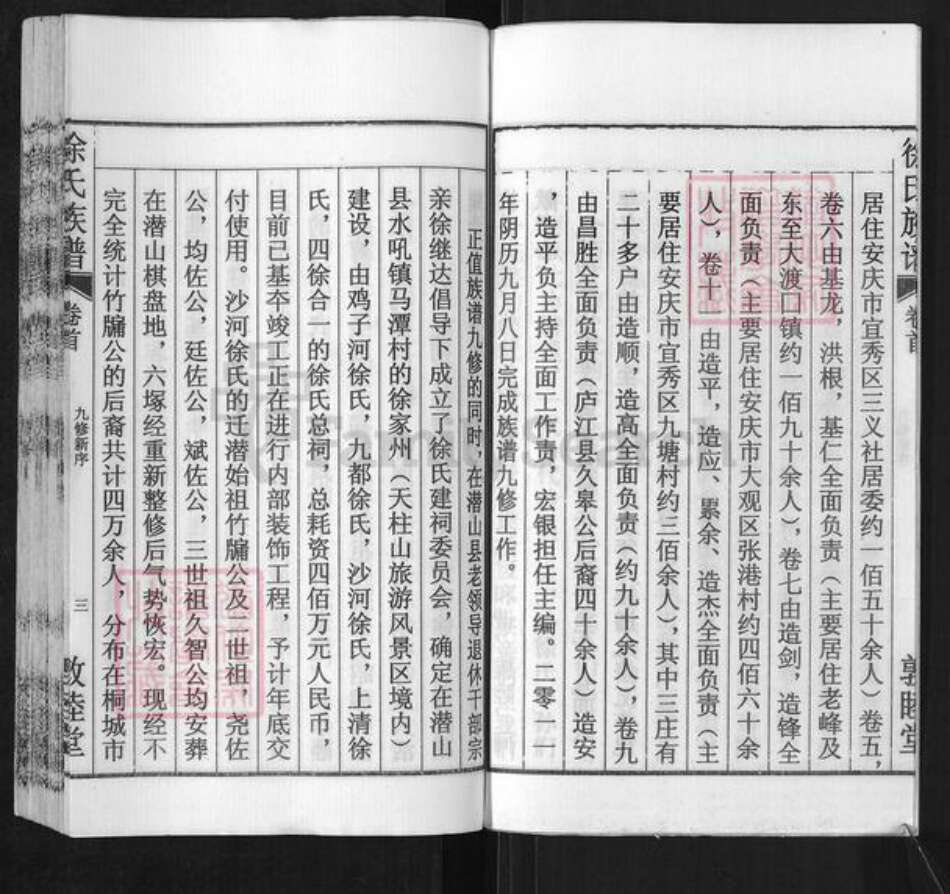 徐氏族谱
卷首
敦睦堂
居住安庆市宜秀区三义社居委约一佰五十余人）卷五，
卷六由基龙，洪根，基仁全面负责（主要居住老峰及
东至大渡口镇约一佰九十余人），卷七由造剑，造锋全
面负责（主要居住安庆市大观区张港村约四佰六十余
人），卷十一由造平，造应、累余、造杰全面负责（主
要居住安庆市宜秀区九塘村约三佰余人），其中三庄有
二十多户由造顺，造高全面负责（约九十余人），卷九
由昌胜全面负责（庐江县久皋公后裔四十余人）造安
，造平负主持全面工作责，宏银担任主编。二零一一
年阴历九月八日完成族谱九修工作。
正值族谱九修的同时，在潜山县老领导退休干部宗
亲徐继达倡导下成立了徐氏建祠委员会，确定在潜山
县水吼镇马潭村的徐家州（天柱山旅游风景区境内）
建设，由鸡子河徐氏，九都徐氏，沙河徐氏，上清徐
氏，四徐合一的徐氏总祠，总耗资四佰万元人民币，
目前已基夲竣工正在进行内部装饰工程，予计年底交
付使用。沙河徐氏的迁潜始祖竹牖公及二世祖，尧佐
公，均佐公，廷佐公，斌佐公，三世祖久智公均安葬
在潜山棋盘地，六塚经重新整修后气势恢宏。现经不
完全统计竹牖公的后裔共计四万余人，分布在桐城市
徐氏族谱
卷首
九修新序
三
敦睦堂